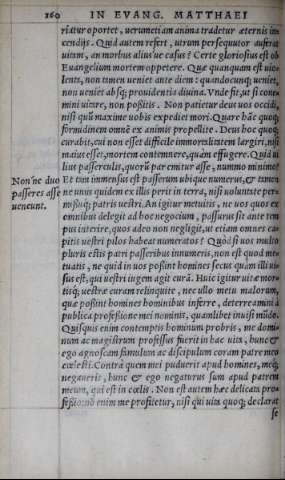 160 IN EVANG. MATTHAEI
riatur oportet, uerumetiam anima tradetur æternis in
cendijs. Quid autem refert, utrum persequutor auferat
uitam, an morbus aliusue casus? Certe gloriosius est ob
Euangelium mortem oppetere. Quæ quanquam est uio-
lenta, non tamen ueniet ante diem: quandocunq; ueniet,
non ueniet absq; prouidentia diuina. Vnde fit, ut si
mini uiuere, non positis. Non patietur deus uos occidi,
nisi quũ maxime uobis expediet mori. Quare hãc quoq;
formidinem omnẽ ex animis propellite. Deus hoc quoq;
curabit, cui non esset difficile immortalitatem largiri, nisi
maius esset, mortem contemnere, quàm effugere. Quid ui
lius passerculis, quorũ par emitur asse, nummo minimo?
Et tam immensus est passerum ubique numerus, & tamen
Non'ne duo
passeres asse
ueneunt.
ne unus quidem ex illis perit in terra, nisi uoluntate per-
missuq; patris uestri. An igitur metuitis, ne uos quos ex
omnibus delegit ad hoc negocium, passurus sit ante tem
pus interire, quos adeo non negligit, ut etiam omnes ca-
pitis uestri pilos habeat numeratos? Quòd si uos multo
pluris estis patri passeribus innumeris, non est quod me-
tuatis, ne quid in uos possint homines secus quàm illi ui-
sus est, qui uestri iugem agit curã. Huic igitur uitæ mor-
tisq; uestræ curam relinquite, nec ullo metu malorum,
quæ possint homines hominibus inferre, deterreamini à
publica professione mei nominis, quamlibet inuiso mũdo.
Quisquis enim contemptis hominum probris, me domi-
num ac magistrum professus fuerit in hac uita, hunc &
ego agnoscam famulum ac discipulum coram patre meo
cœlesti. Contrà quem mei puduerit apud homines, meq;
negauerit, hunc & ego negaturus sum apud patrem
meum, qui est in cœlis. Non est autem hæc delicata pro-
fessio: nõ enim me profitetur, nisi qui uita quoq; declarat
se